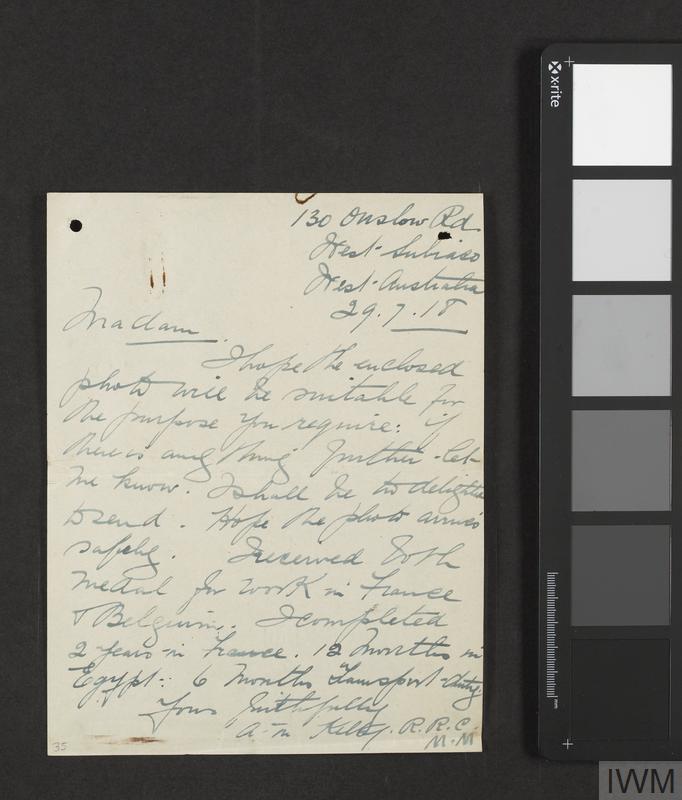 130 Onslow Rd.
West-Subiaco
West-Australia
29.7.18
Madam.
I hope the enclosed
photo will be suitable for
the purpose you require: if
there is any thing further-let-
me know. I shall be delighted
to send. Hope the photo arrives
safely. I received both
medal for work in France
& Belgium. I completed
2 years-in France. 12 months in
Egypt: 6 months transport-duty
Yours faithfully
A-M Kelly. R.R.C.
M.M
35
x-rite
mm
IWM